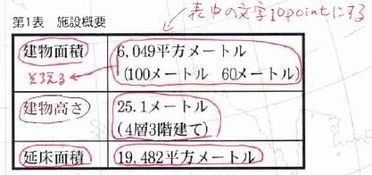 表中の文字10pointにする
第1表 施設概要
建物面積 6,049平方メートル
そろえる (100メートル 60メートル)
建物高さ 25.1メートル
(4層3階建て)
延床面積 19,482平方メートル